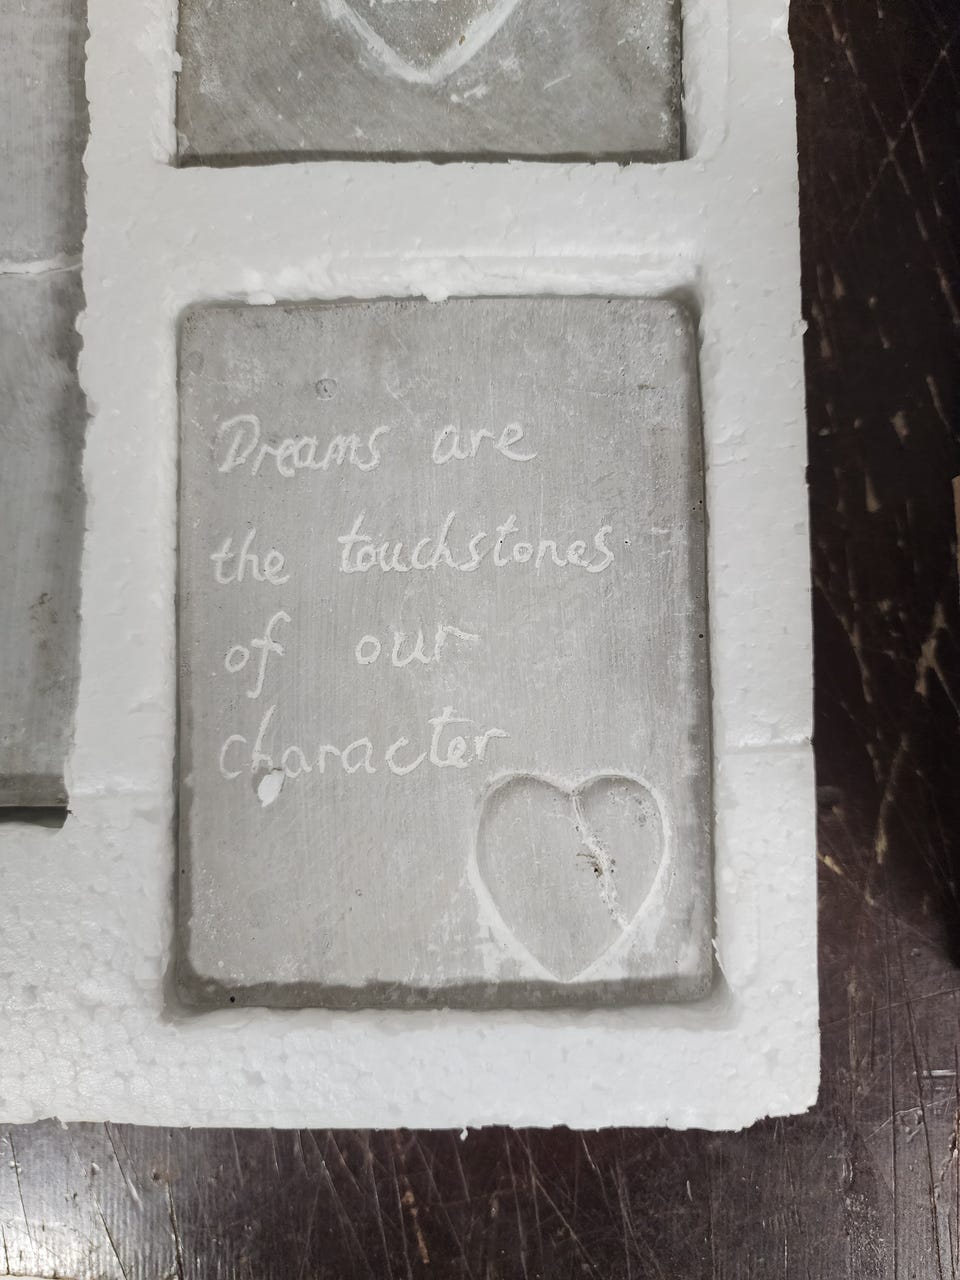 Dreams are
the touchstones
of our
character